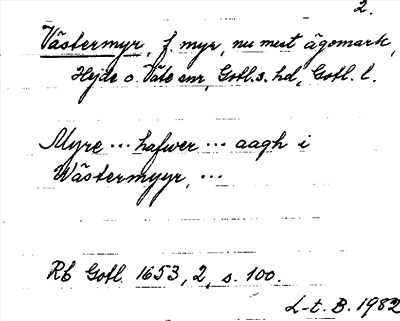 2.
Västermyr, f. myr, nu mest ägomark,
Hejde o. Väte snr, Gotl. s. hd, Gotl. l.
Myre ... hafwer ... aagh i
Wästermyyr, ...
Rb Gotl. 1653, 2, s. 100.
L-t. B. 1982